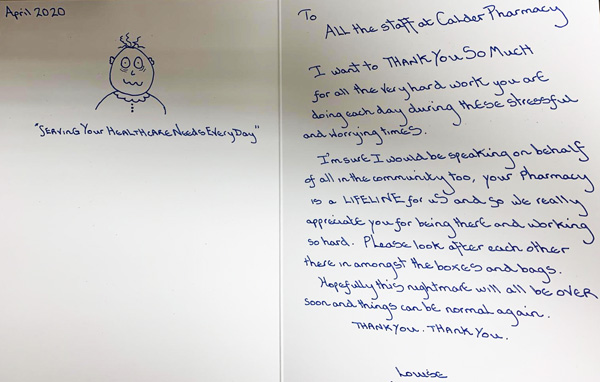 April 2020
"SERVING YOUR HEALTHCARE NEEDS EVERY DAY"
To
ALL the staff at Calder Pharmacy
I want to THANK YOU SO MUCH
for all the very hard work you are
doing each day during these stressful
and worrying times.
I'm sure I would be speaking on behalf
of all in the community too, your Pharmacy
is a LIFELINE for us and so we really
appreciate you for being there and working
so hard. Please look after each other
there in amongst the boxes and bags.
Hopefully this nightmare will all be OVER
soon and things can be normal again.
THANK YOU. THANK YOU.
Louise